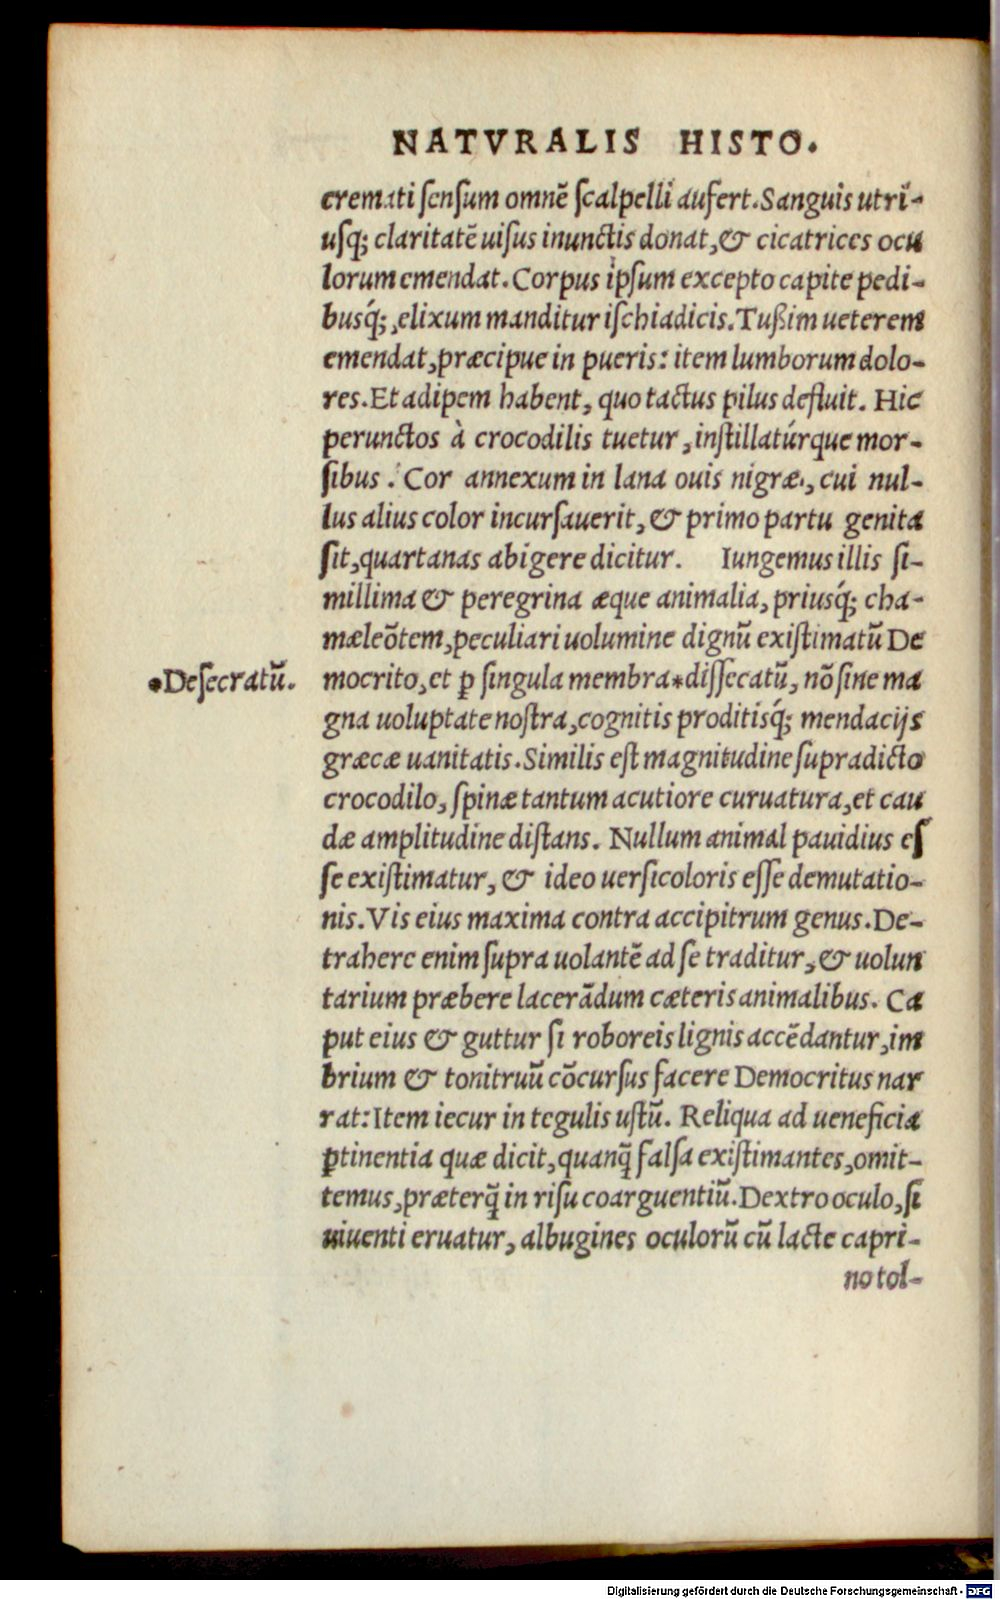 NATVRALIS HISTO.
cremati ſenſum omnē ſcalpelli aufert. Sanguis utri-
uſq; claritatē uiſus inunctis donat, & cicatrices ocu
lorum emendat. Corpus ipſum excepto capite pedi-
busq́;, elixum manditur iſchiadicis. Tußim ueterem
emendat, præcipue in pueris: item lumborum dolo-
res. Et adipem habent, quo tactus pilus defluit. Hic
perunctos à crocodilis tuetur, inſtillatúrque mor-
ſibus. Cor annexum in lana ouis nigræ, cui nul-
lus alius color incurſauerit, & primo partu genita
ſit, quartanas abigere dicitur. Iungemus illis ſi-
millima & peregrina æque animalia, priusq́; cha-
mæleōtem, peculiari uolumine dignū exiſtimatū De
•Deſecratū.
mocrito, et ꝑ ſingula membra*diſſecatū, nō ſine ma
gna uoluptate noſtra, cognitis proditisq́; mendacijs
græcæ uanitatis. Similis eſt magnitudine ſupradicto
crocodilo, ſpinæ tantum acutiore curuatura, et cau
dæ amplitudine diſtans. Nullum animal pauidius eſ
ſe exiſtimatur, & ideo uerſicoloris eſſe demutatio-
nis. Vis eius maxima contra accipitrum genus. De-
trahere enim ſupra uolantē ad ſe traditur, & uolun
tarium præbere lacerādum cæteris animalibus. Ca
put eius & guttur ſi roboreis lignis accēdantur, im
brium & tonitruū cōcurſus facere Democritus nar
rat: Item iecur in tegulis uſtū. Reliqua ad ueneficia
ꝑtinentia quæ dicit, quanq̄ falſa exiſtimantes, omit-
temus, præterq̄ in riſu coarguentiū. Dextro oculo, ſi
uiuenti eruatur, albugines oculorū cū lacte capri-
no tol-
Digitalisierung gefördert durch die Deutsche Forschungsgemeinschaft - DFG